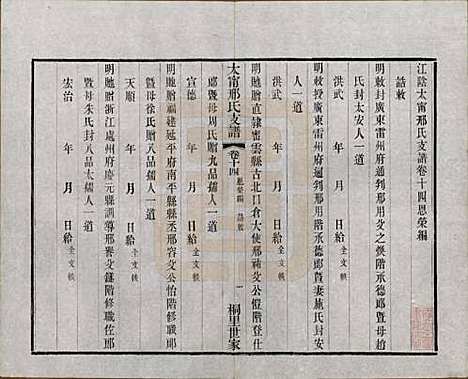 江陰太甯邢氏支譜卷十四恩榮編
誥敕
明敕封廣東雷州府通判邢用階承德郎暨母趙
氏封太安人一道
洪武 年 月 日給全文軼
明敕授廣東雷州府通判邢用階承德郎暨妻施氏安
人一道
洪武 年 月 日給全文軼
明貤贈直隸密雲縣古北口倉大使邢神父公愷階登仕
太甯邢氏支譜
卷十四 恩榮編 誥敕
一
桐里世家
郎暨母周氏贈九品孺人一道
宣德 年 月 日給全文軼
明貤贈福建延平府南平縣縣丞邢父公怡階修職郎
暨母徐氏贈八品孺人一道
天順 年 月 日給全文軼
明貤贈浙江處州府慶元縣訓導邢譽父鏈階修職佐郎
暨母朱氏封八品太孺人一道
宏治 年 月 日給全文軼